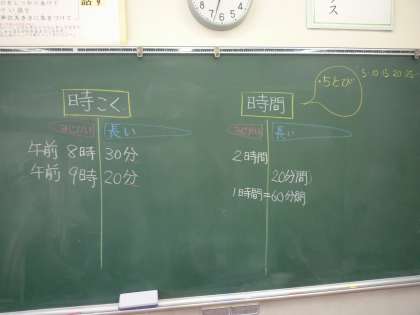 話す
時こく
みじかい
長い
午前 8時 30分
午前 9時 20分
時間
・5とび
5 10 15 20 25
みじかい
長い
2時間
20分間
1時間=60分間